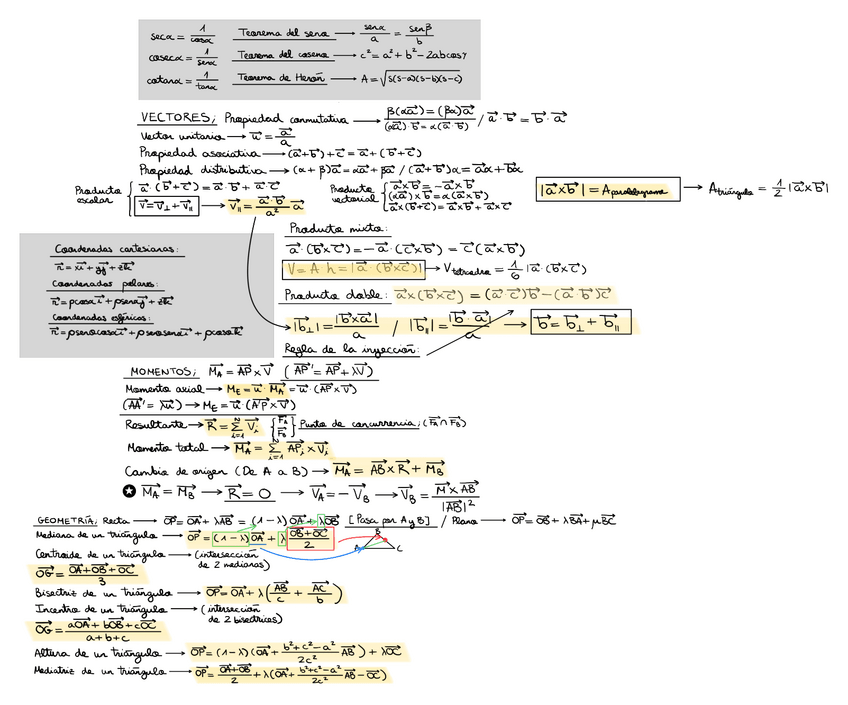 sec α = 1/cos α   Teorema del seno → sen α/a = sen β/b
cosec α = 1/sen α   Teorema del coseno → c² = a² + b² - 2ab cos γ
cotan α = 1/tan α   Teorema de Herón → A = √(s(s-a)(s-b)(s-c))
VECTORES; Propiedad conmutativa → β(αa⃗) = (βα)a⃗ / a⃗·b⃗ = b⃗·a⃗
(αa⃗)·b⃗ = α(a⃗·b⃗)
Vector unitario → u⃗ = a⃗/a
Propiedad asociativa → (a⃗+b⃗)+c⃗ = a⃗+(b⃗+c⃗)
Propiedad distributiva → (α+β)a⃗ = αa⃗ + βa⃗ / (a⃗+b⃗)α = a⃗α + b⃗α
Producto escalar { a⃗·(b⃗+c⃗) = a⃗·b⃗ + a⃗·c⃗
v⃗ = v⃗⊥ + v⃗∥ → v⃗∥ = (a⃗·b⃗/a²) a⃗
Producto vectorial { a⃗×b⃗ = -a⃗×b⃗
(αa⃗)×b⃗ = α(a⃗×b⃗)
a⃗×(b⃗+c⃗) = a⃗×b⃗ + a⃗×c⃗
|a⃗×b⃗| = A paralelogramo → A triángulo = 1/2 |a⃗×b⃗|
Producto mixto:
a⃗·(b⃗×c⃗) = -a⃗·(c⃗×b⃗) = c⃗(a⃗×b⃗)
V = A·h = |a⃗·(b⃗×c⃗)| → V tetraedro = 1/6 |a⃗·(b⃗×c⃗)
Producto doble: a⃗×(b⃗×c⃗) = (a⃗·c⃗)b⃗ - (a⃗·b⃗)c⃗
|b⃗⊥| = |b⃗×a⃗|/a / |b⃗∥| = |b⃗·a⃗|/a → b⃗ = b⃗⊥ + b⃗∥
Regla de la inyección:
Coordenadas cartesianas:
r⃗ = xi⃗ + yj⃗ + zk⃗
Coordenadas polares:
r⃗ = ρcosα i⃗ + ρsenα j⃗ + zk⃗
Coordenadas esféricas:
MOMENTOS; M⃗A = AP⃗×V⃗ (AP'⃗ = AP⃗ + λV⃗)
Momento axial → M_E = u⃗·M⃗A = u⃗·(AP⃗×V⃗)
(AA'⃗ = λu⃗) → M_E = u⃗·(A'P⃗×V⃗)
Resultante → R⃗ = Σ(i=1, n) V⃗i { F⃗A F⃗B } Punto de concurrencia; (F⃗A ∩ F⃗B)
Momento total → M⃗A = Σ(i=1, n) AP⃗i × V⃗i
Cambio de origen (De A a B) → M⃗A = AB⃗×R⃗ + M⃗B
★ M⃗A = M⃗B → R⃗ = 0 → V⃗A = -V⃗B → V⃗B = M⃗×AB⃗/|AB⃗|²
GEOMETRÍA; Recta → OP⃗ = OA⃗ + λAB⃗ = (1-λ)OA⃗ + λOB⃗ [Pasa por A y B] / Plano → OP⃗ = OB⃗ + λBA⃗ + μBC⃗
Mediana de un triángulo → OP⃗ = (1-λ)OA⃗ + λ (OB⃗+OC⃗)/2   A B C
Centroide de un triángulo → (intersección de 2 medianas)
OG⃗ = (OA⃗+OB⃗+OC⃗)/3
Bisectriz de un triángulo → OP⃗ = OA⃗ + λ(AB⃗/c + AC⃗/b)
Incentro de un triángulo → (intersección de 2 bisectrices)
OG⃗ = (aOA⃗ + bOB⃗ + cOC⃗)/(a+b+c)
Altura de un triángulo → OP⃗ = (1-λ)(OA⃗ + (b²+c²-a²)/2c² AB⃗) + λOC⃗
Mediatriz de un triángulo → OP⃗ = (OA⃗+OB⃗)/2 + λ(OA⃗ + (b²+c²-a²)/2c² AB⃗ - OC⃗)